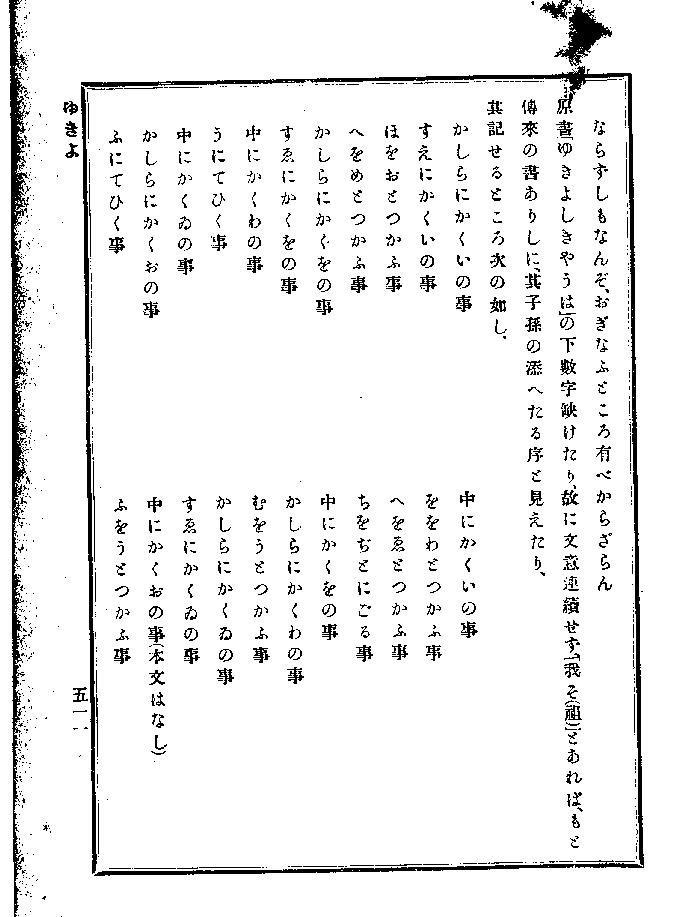 ならずしもなんぞ、おぎなふところ有べからざらん
原書「ゆきよしきやうは」の下數字缺けたり、故に文意連續せず、「我そ(祖)」とあれば、もと
傳來の書ありしに、其子孫の添へたる序と見えたり、
其記せるところ次の如し、
かしらにかくいの事
中にかくいの事
すえにかくいの事
ををわとつかふ事
ほをおとつかふ事
へをゑとつかふ事
へをめとつかふ事
ちをぢとにごる事
かしらにかくをの事
中にかくをの事
すゑにかくをの事
かしらにかくわの事
中にかくわの事
むをうとつかふ事
うにてひく事
かしらにかくゐの事
中にかくゐの事
すゑにかくゐの事
かしらにかくおの事
中にかくおの事(本文はなし)
ふにてひく事
ふをうとつかふ事
ゆきよ
五一一